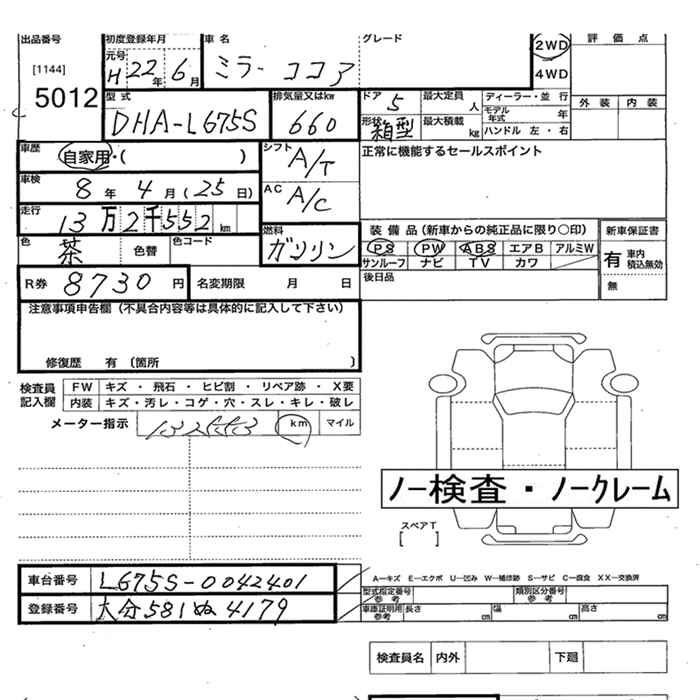 出品番号 初度登録年月 車名 グレード 2WD 評価点
[1144] 元号 H 22年 6月 ミラー ココア 4WD
5012 型式 排気量又はkw ドア 5 最大定員 人 ディーラー・並行 外装 内装
DHA-L675S 660 形状 箱型 最大積載 kg モデル年式 年 ハンドル 左・右
車歴 自家用・( ) シフト A/T 正常に機能するセールスポイント
車検 8年 4月 (25日) AC A/C
走行 13万2千552 km 燃料 ガソリン 装備品(新車からの純正品に限り○印) 新車保証書
色 茶 色替 色コード PS PW ABS エアB アルミW 有 車内積込無効
サンルーフ ナビ TV カワ
R券 8730円 名変期限 月 日 後日品 無
注意事項申告欄(不具合内容等は具体的に記入して下さい)
修復歴 有 〔箇所 〕
検査員記入欄 FW キズ・飛石・ヒビ割・リペア跡・X要
内装 キズ・汚レ・コゲ・穴・スレ・キレ・破レ
メーター指示 km マイル
ノー検査・ノークレーム
スペアT
[ ]
車台番号 L675S-0042401 A−キズ E−エクボ U−凹み W−補修跡 S−サビ C−腐食 XX−交換済
型式指定番号 参考 類別区分番号 参考
登録番号 大分581ぬ4179 車庫証明用 参考 長さ cm 幅 cm 高さ cm
検査員名 内外 下廻